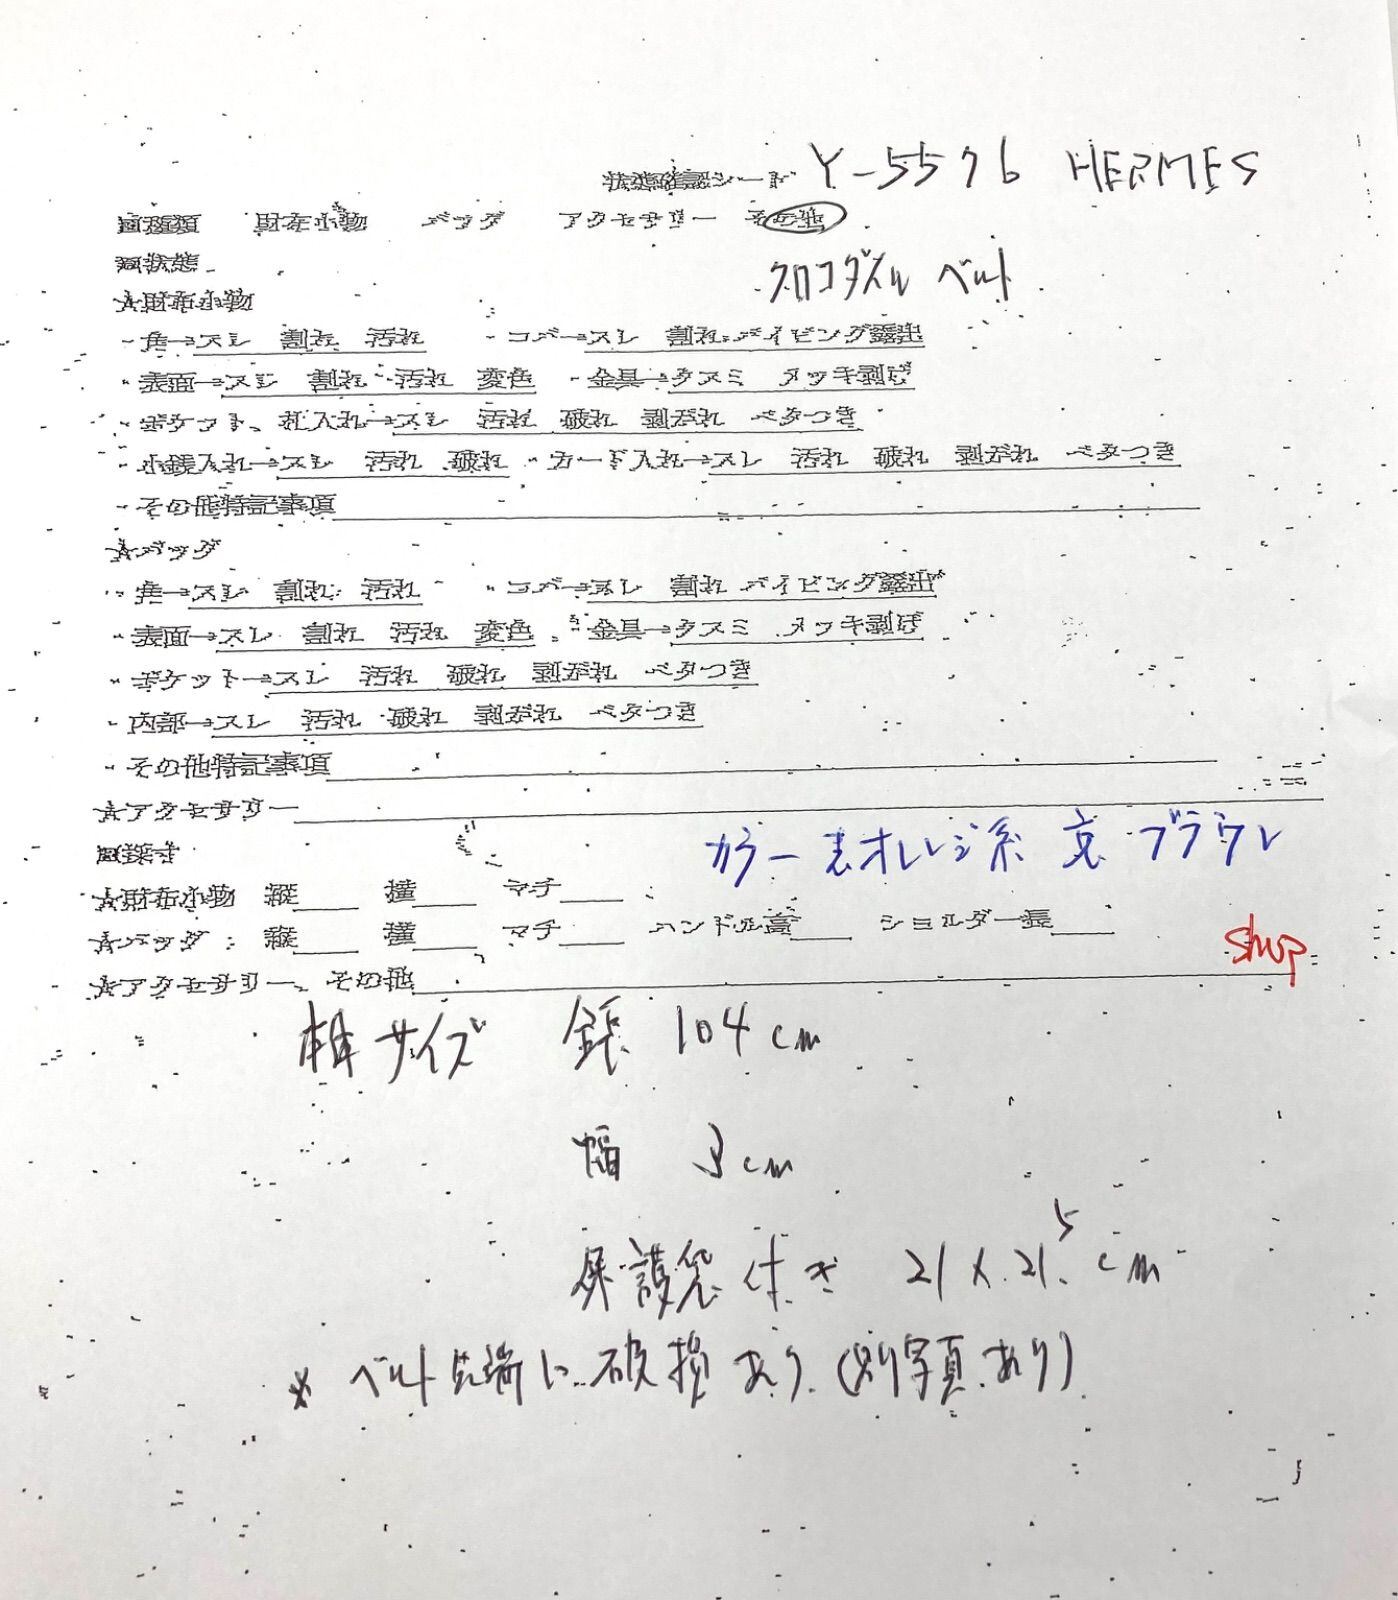 状態確認シート Y-5576 HERMES
□種類 財布小物 バッグ アクセサリー その他
□状態 クロコダイル ベルト
☆財布小物
・角→スレ 割れ 汚れ ・コバ→スレ 割れ パイピング露出
・表面→スレ 割れ 汚れ 変色 ・金具→クスミ メッキ剥げ
・ポケット、札入れ→スレ 汚れ 破れ 剥がれ ベタつき
・小銭入れ→スレ 汚れ 破れ ・カード入れ→スレ 汚れ 破れ 剥がれ ベタつき
・その他特記事項
☆バッグ
・角→スレ 割れ 汚れ ・コバ→スレ 割れ パイピング露出
・表面→スレ 割れ 汚れ 変色 ・金具→クスミ メッキ剥げ
・ポケット→スレ 汚れ 破れ 剥がれ ベタつき
・内部→スレ 汚れ 破れ 剥がれ ベタつき
・その他特記事項
☆アクセサリー
□採寸 カラー 表オレンジ系 裏 ブラウン
☆財布小物 縦 横 マチ
☆バッグ : 縦 横 マチ ハンドル高 ショルダー長
shop
☆アクセサリー、その他
本体サイズ 全長 104cm
幅 3cm
保護袋付き 21×21.5cm
* ベルト先端に破損あり(別写真あり)